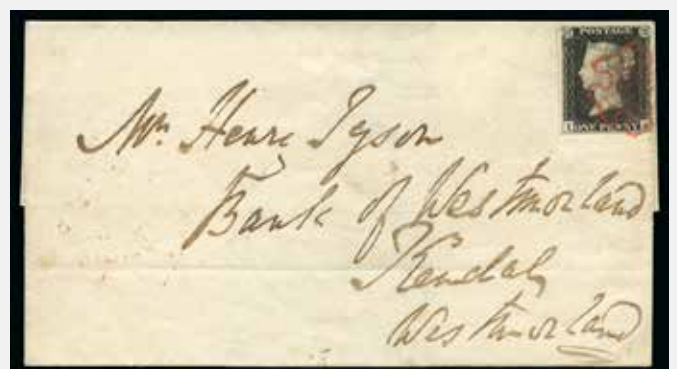 POSTAGE
ONE PENNY
Mr. Henry Tyson
Bank of Westmorland
Kendal
Westmorland